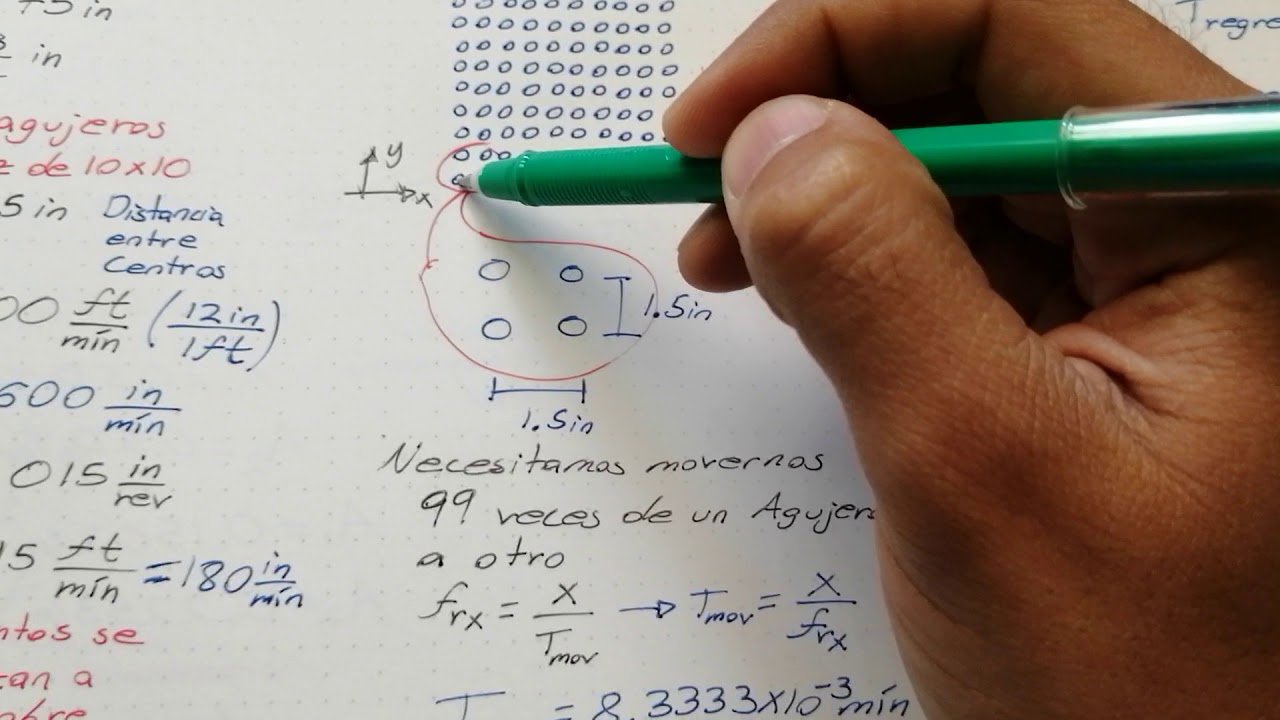 75 in
in
agujeros
z de 10x10
5 in Distancia
entre
Centros
00 ft/min (12in/1ft)
600 in/min
015 in/rev
15 ft/min = 180 in/min
ntos se
tan a
mbre
y
x
1.5in
1.5in
Necesitamos movernos
99 veces de un Agujer
a otro
frx = x/Tmov → Tmov = x/frx
T = 8.3333x10⁻³ min
Tregre